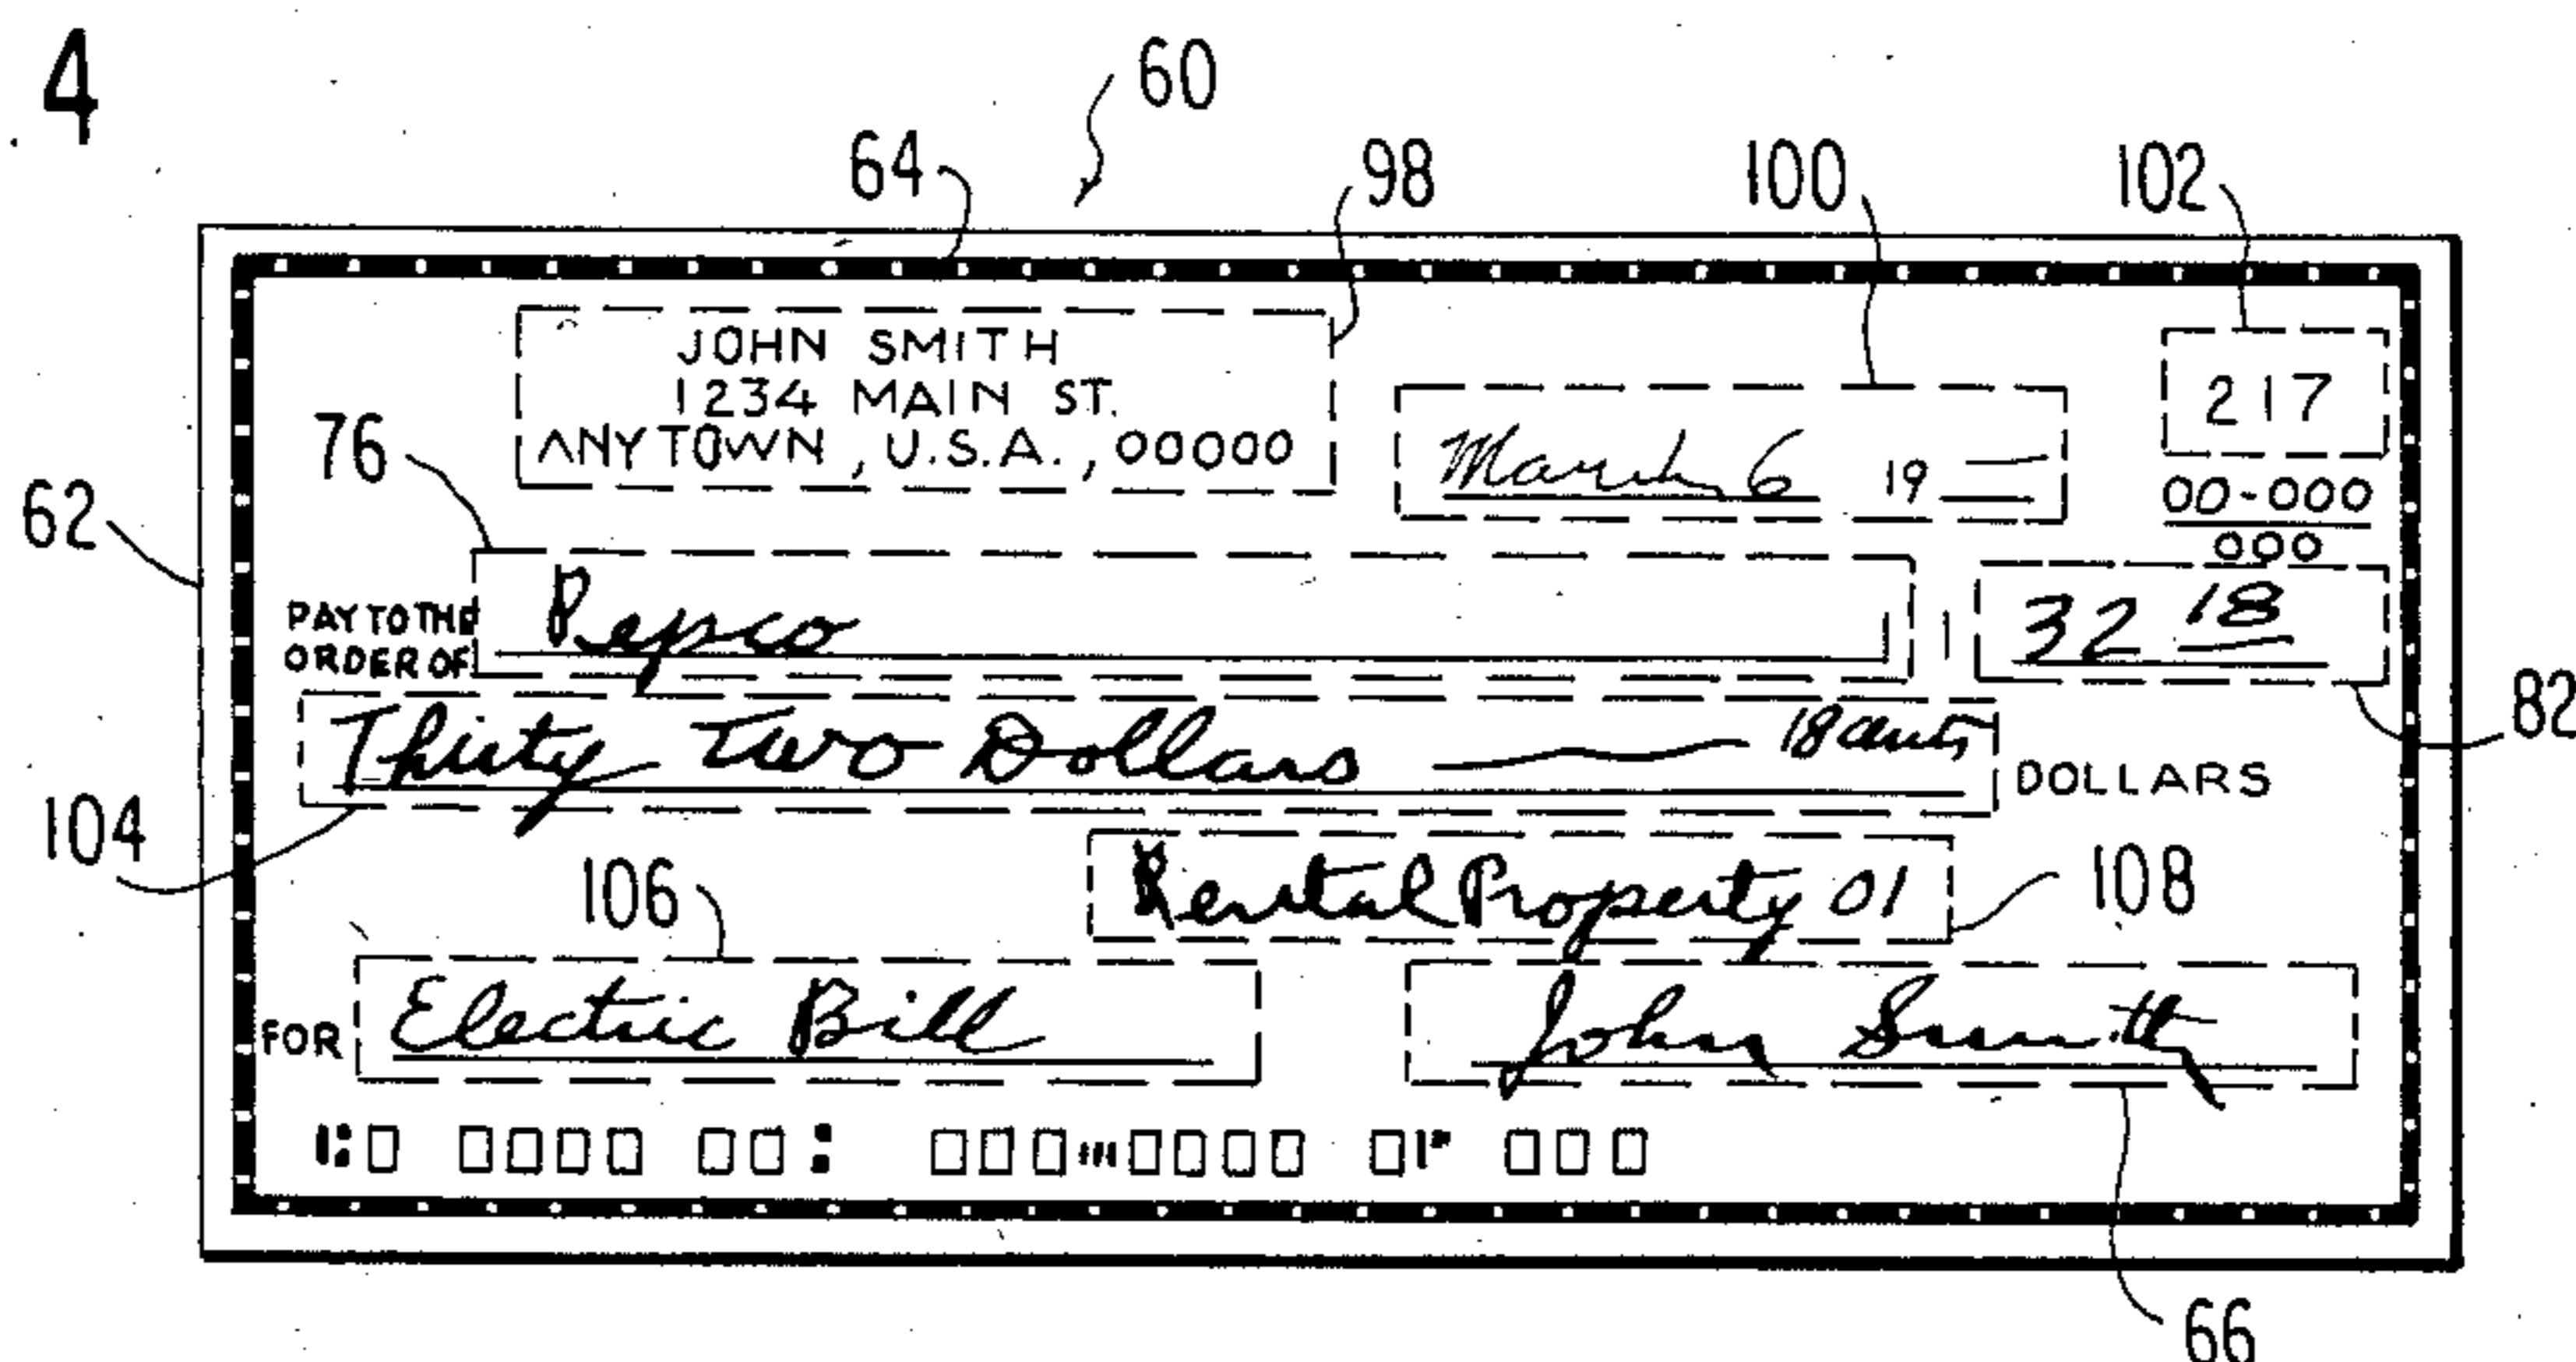 4
60
64
98
100
102
JOHN SMITH
1234 MAIN ST.
ANYTOWN, U.S.A., 00000
217
76
March 6 19
00-000
000
62
PAY TO THE
ORDER OF
Pepco
32 18
82
Thirty Two Dollars 18 cents
DOLLARS
104
Rental Property 01
108
106
FOR
Electric Bill
John Smith
66